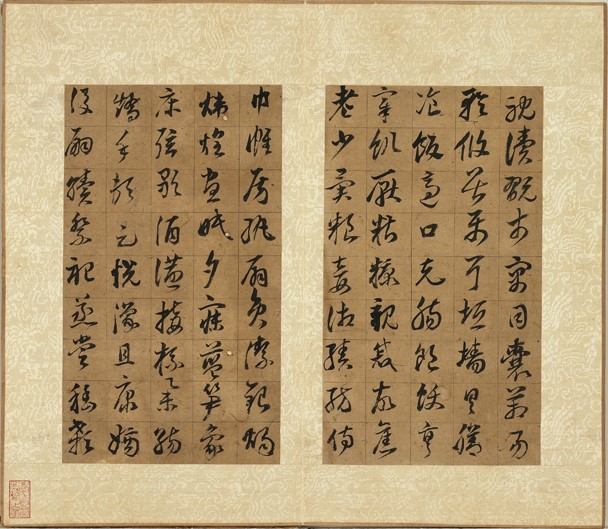 耽讀翫市寓目囊箱易
輶攸畏屬耳垣牆具膳
飡飯適口充腸飽飫烹
宰飢厭糟糠親戚故舊
老少異糧妾御績紡侍
巾帷房紈扇員潔銀燭
煒煌晝眠夕寐藍筍象
床弦歌酒讌接杯舉觴
矯手頓足悅豫且康嫡
後嗣續祭祀蒸嘗稽顙